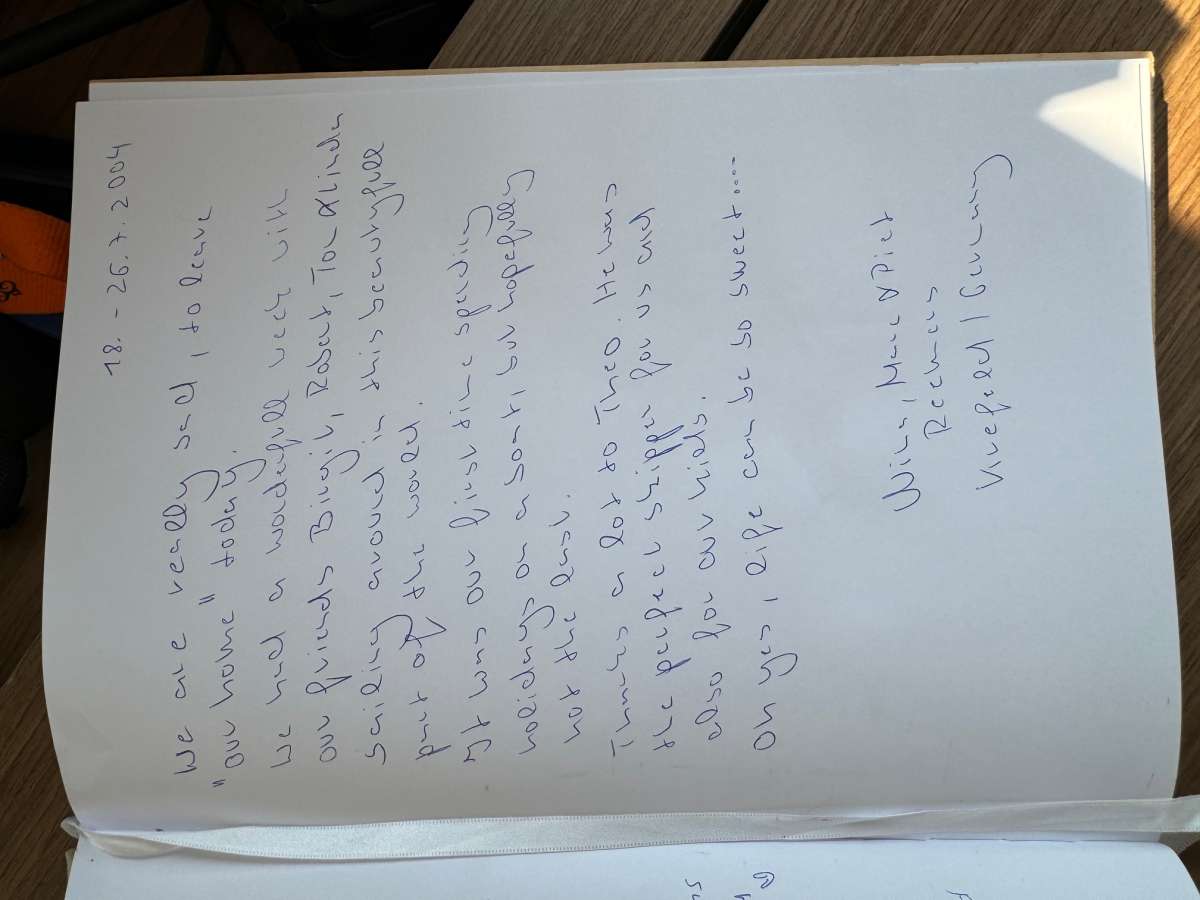 18. - 26.7.2004
We are really sad, to leave
"our home" today.
We had a wonderfull week with
our friends Birgit, Robert, Ton & Linda
sailing around in this beautyfull
part of the world.
It was our first time spending
holidays on a boat, but hopefully
not the last.
Thanks a lot to Theo. He was
the perfect skipper for us and
also for our kids.
Oh yes, life can be so sweet....
Wim, Marc & Piet
Reckmans
Krefeld / Germany